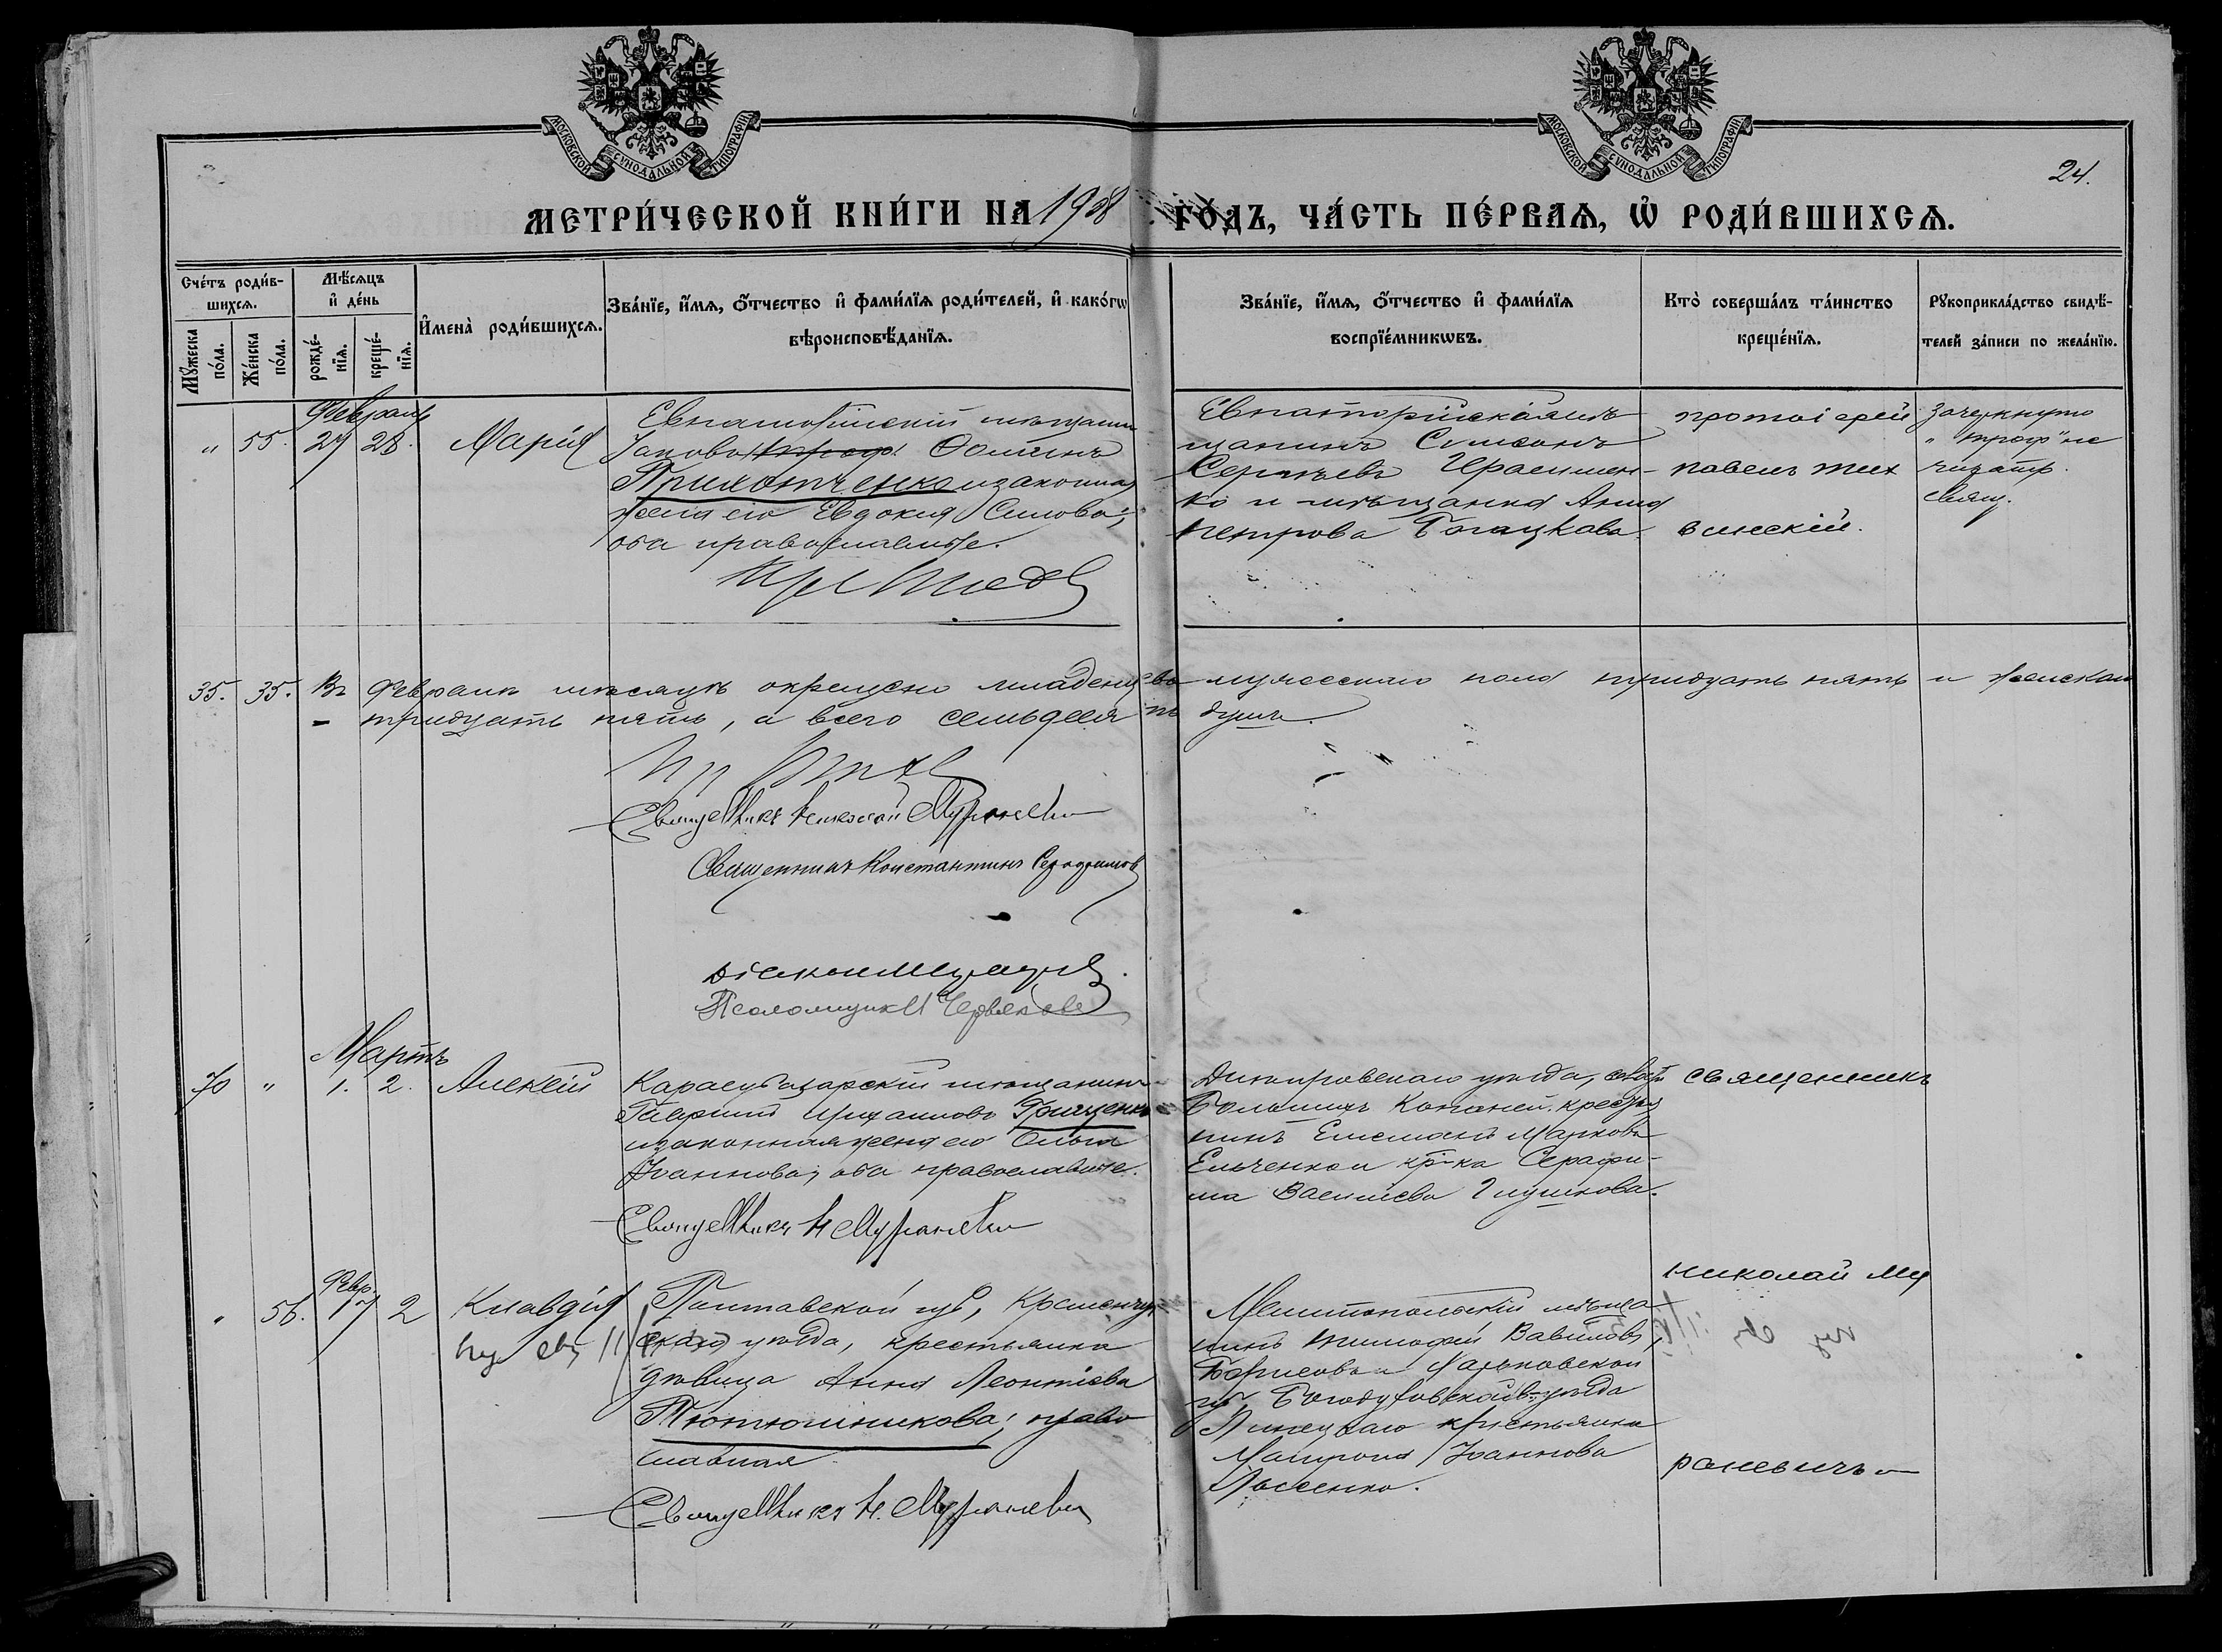 МОСКОВСКОЙ СѴНОДАЛЬНОЙ ТИПОГРАФІИ
МОСКОВСКОЙ СѴНОДАЛЬНОЙ ТИПОГРАФІИ
24.
МЕТРИ́ЧЕСКОЙ КНИ́ГИ НА 1908 ГО́ДЪ, ЧА́СТЬ ПЕ́РВАѦ, Ѡ҆ РОДИ́ВШИХСѦ.
Сче́тъ роди́в-
шихсѧ.
Мꙋ́жеска по́ла.
Же́нска по́ла.
Мѣ́сѧцъ
и҆ де́нь
рожде́-нїѧ.
креще́-нїѧ.
И҆мена̀ роди́вшихсѧ.
Зва́нїе, и҆́мѧ, ѻ҆́тчество и҆ фами́лїѧ роди́телей, и҆ како́гѡ
вѣроисповѣ́данїѧ.
Зва́нїе, и҆́мѧ, ѻ҆́тчество и҆ фами́лїѧ
воспрїе́мникѡвъ.
Кто̀ соверша́лъ та́инство
креще́нїѧ.
Рꙋкоприкла́дство свидѣ́-
телей за́писи по жела́нїю.
Февраль
" 55. 27 28. Марія
Евпаторійскій мѣщанин
Іаково Ѳоминъ
Прихотченко и законная
жена его Евдокия Симова;
оба православные.
Евпаторійскій мѣ
щанинъ Симеонъ
Сергѣевъ Герасимен-
ко и мѣщанка Анна
Петрова Богацкова.
протоіерей
Павелъ Тих
винскій.
Зачеркнуто
"троф" не
читать.
Свящ.
35. 35. Въ Февралѣ мѣсяцѣ окрещено младенцевъ мужескаго пола тридцать пять и женскаго
- тридцать пять, а всего семьдесятъ душъ.
Священникъ Николай Мураневич
Священникъ Константинъ Серафимов
Діаконъ
Псаломщик И Червяков
Мартъ
70 " 1. 2. Алексій
Карасубазарскій мѣщанинъ
Гавріилъ Михаиловъ Грищенко
и законная жена его Ольга
Іоаннова; оба православные.
Священникъ Н Мураневич
Днѣпровскаго уѣзда,
Большихъ Копаней крестья
нинъ Емеліанъ Марковъ
Ельченко и кр-ка Серафи-
ма Васильева Глушкова.
священникъ
Николай Му
раневичъ
Февр.
" 56. 17 2 Клавдія
Полтавской губ, Кременчуг
скаго уѣзда, крестьянка
дѣвица Анна Леонтіева
Тютюнникова; право
славная
Священникъ Н. Мураневич
Мелитопольскій мѣща
нинъ Тимофей Вавиловъ
Борисовъ и Харьковской
губ, Богодуховскаго уѣзда
крестьянка
Матрона Іоаннова
Лысенко.